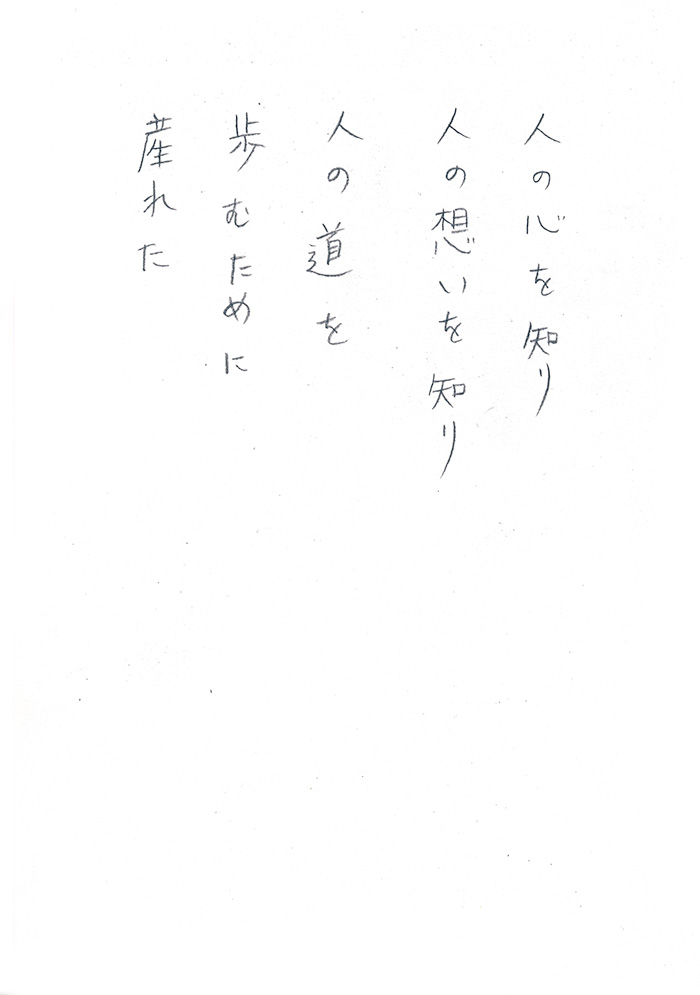 人の心を知り
人の想いを知り
人の道を
歩むために
産れた